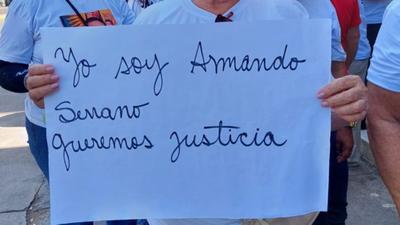 Yo soy Armando
Serrano
queremos justicia